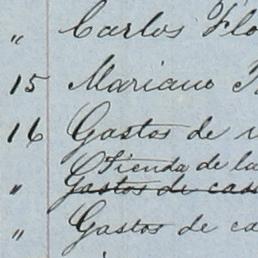 " Carlos Flo
15 Mariano
16 Gastos de
Tienda de la
" Gastos de cas
" Gastos de ca